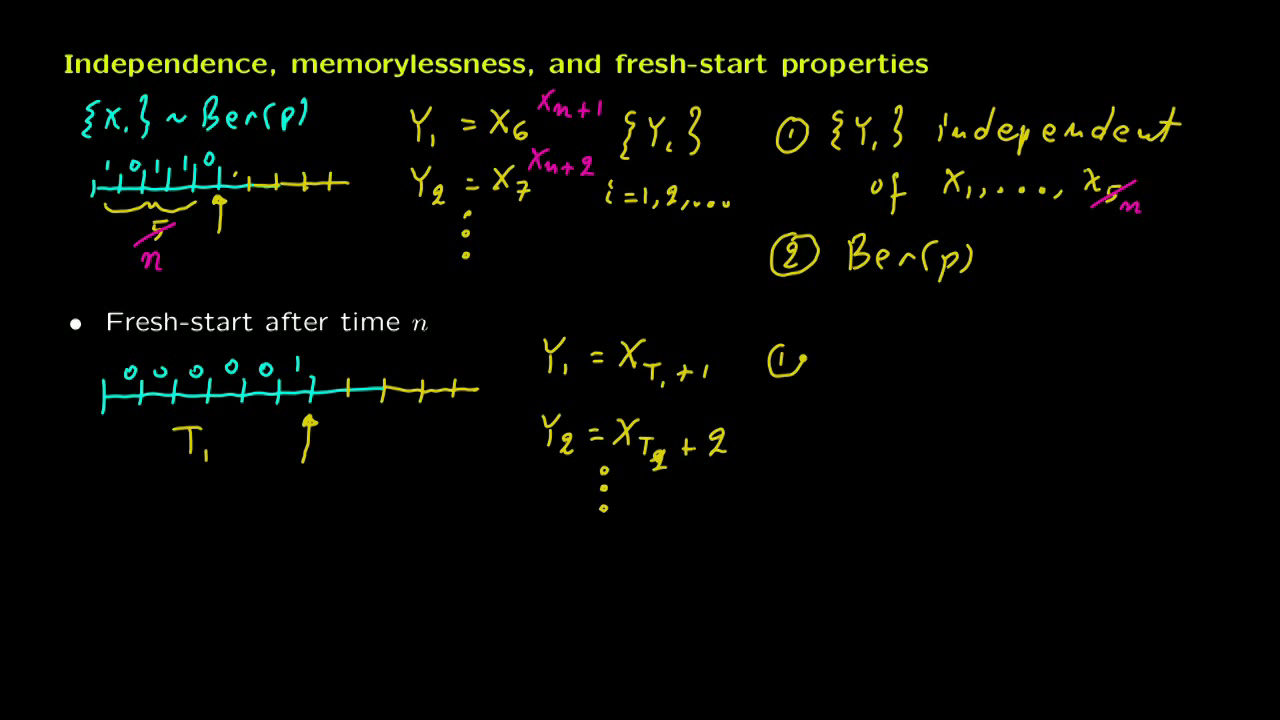 Independence, memorylessness, and fresh-start properties
{Xᵢ} ~ Ber(p)
1 0 1 1 0
5
n
Y₁ = X₆ Xₙ₊₁
Y₂ = X₇ Xₙ₊₂
{Yᵢ}
i = 1, 2, ...
① {Yᵢ} independent
of X₁, ..., X₅ n
② Ber(p)
• Fresh-start after time n
0 0 0 0 0 1
T₁
Y₁ = X_{T₁ + 1}
Y₂ = X_{T₂ + 2}
①